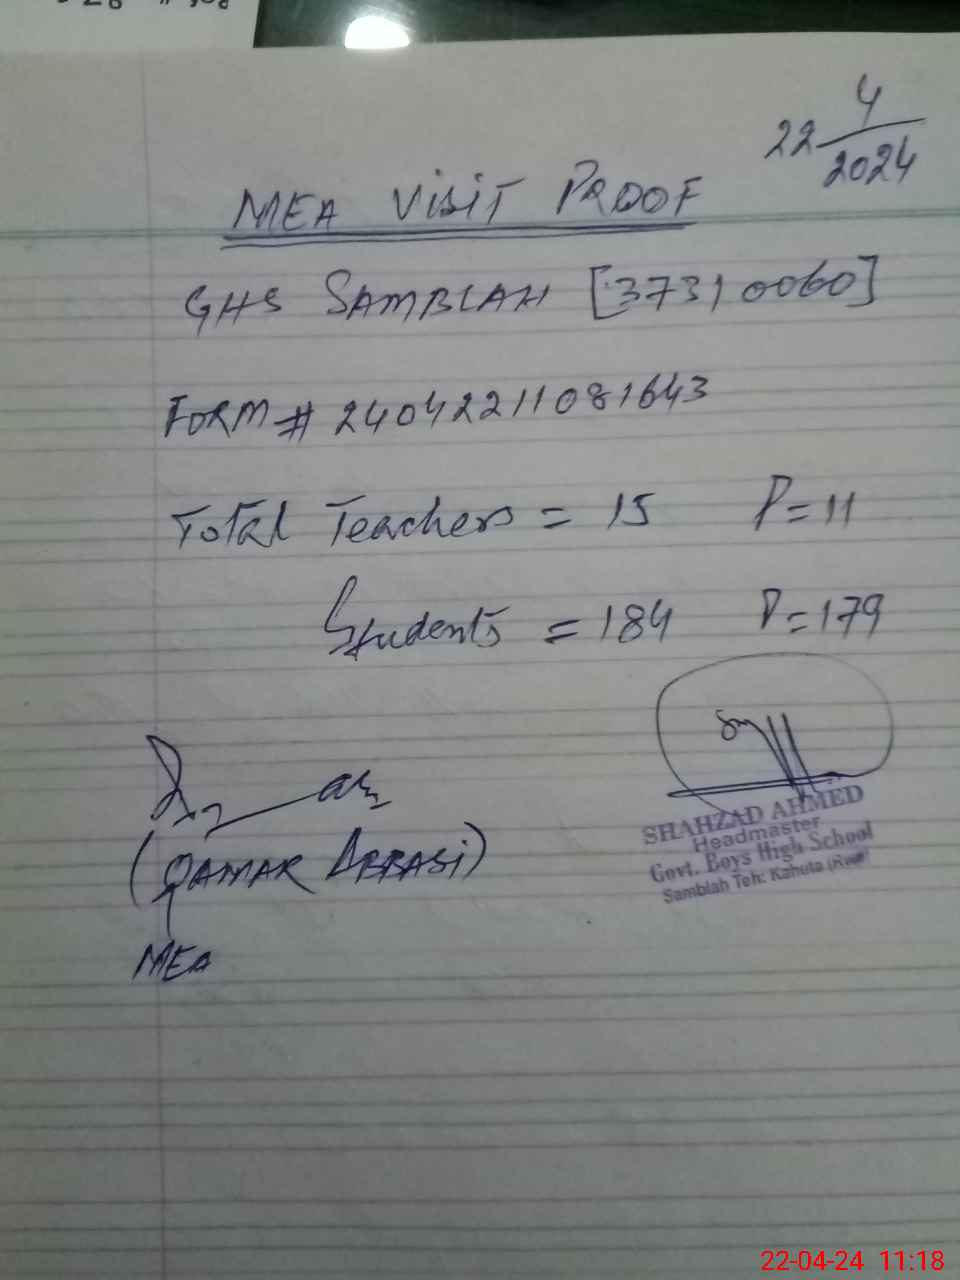 22 4/2024
MEA VISIT PROOF
GHS SAMBLAH [37310060]
FORM # 24042211081643
Total Teachers = 15 P=11
Students = 184 P=179
SHAHZAD AHMED
Headmaster
Govt. Boys High School
Samblah Teh: Kahuta (Rwp)
(QAMAR ABBASI)
MEA
22-04-24 11:18